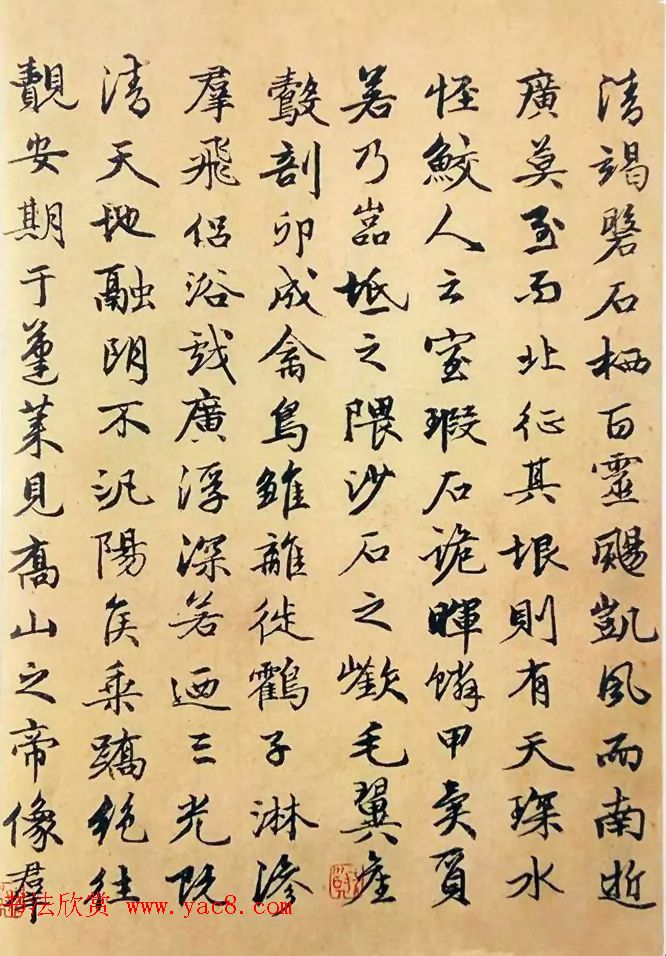 清竭磐石栖百靈颺凱風而南逝
廣莫至而北征其垠則有天琛水
怪鮫人之室瑕石詭暉鱗甲異質
若乃嵓坻之隈沙石之嶔毛翼產
鷇剖卵成禽鳧雛離徙鶴子淋滲
羣飛侣浴戲廣浮深若迺三光既
清天地融朗不汎陽侯乘蹻絕往
覿安期于蓬萊見喬山之帝像羣
书法欣赏 www.yac8.com